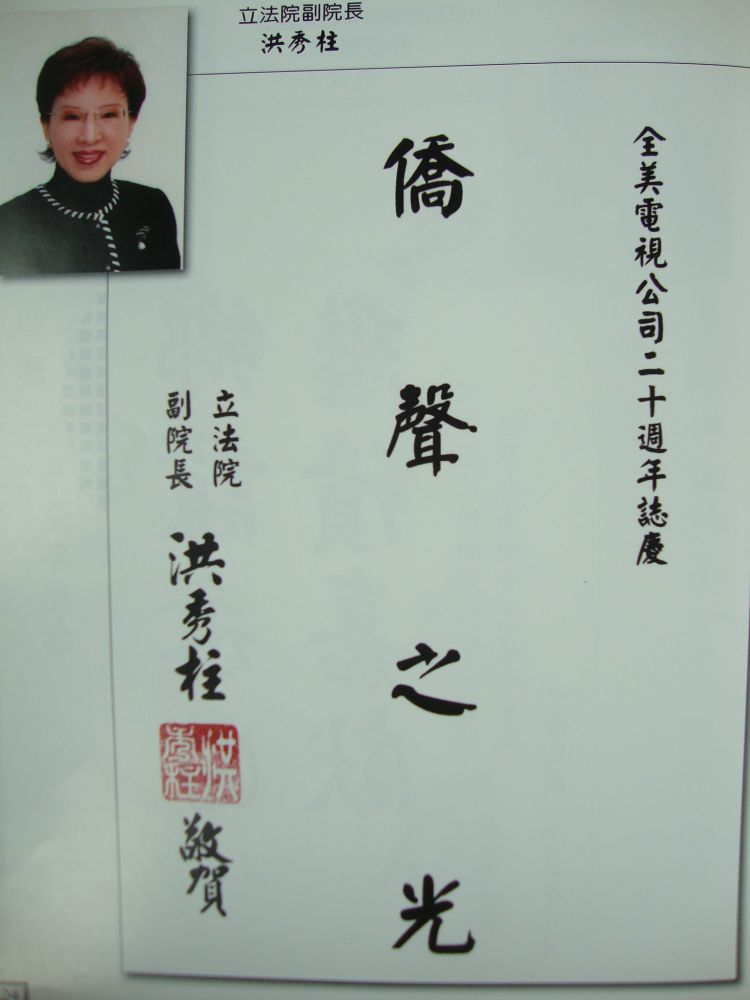 立法院副院長
洪秀柱
全美電視公司二十週年誌慶
僑聲之光
立法院
副院長
洪秀柱
洪秀柱
敬賀